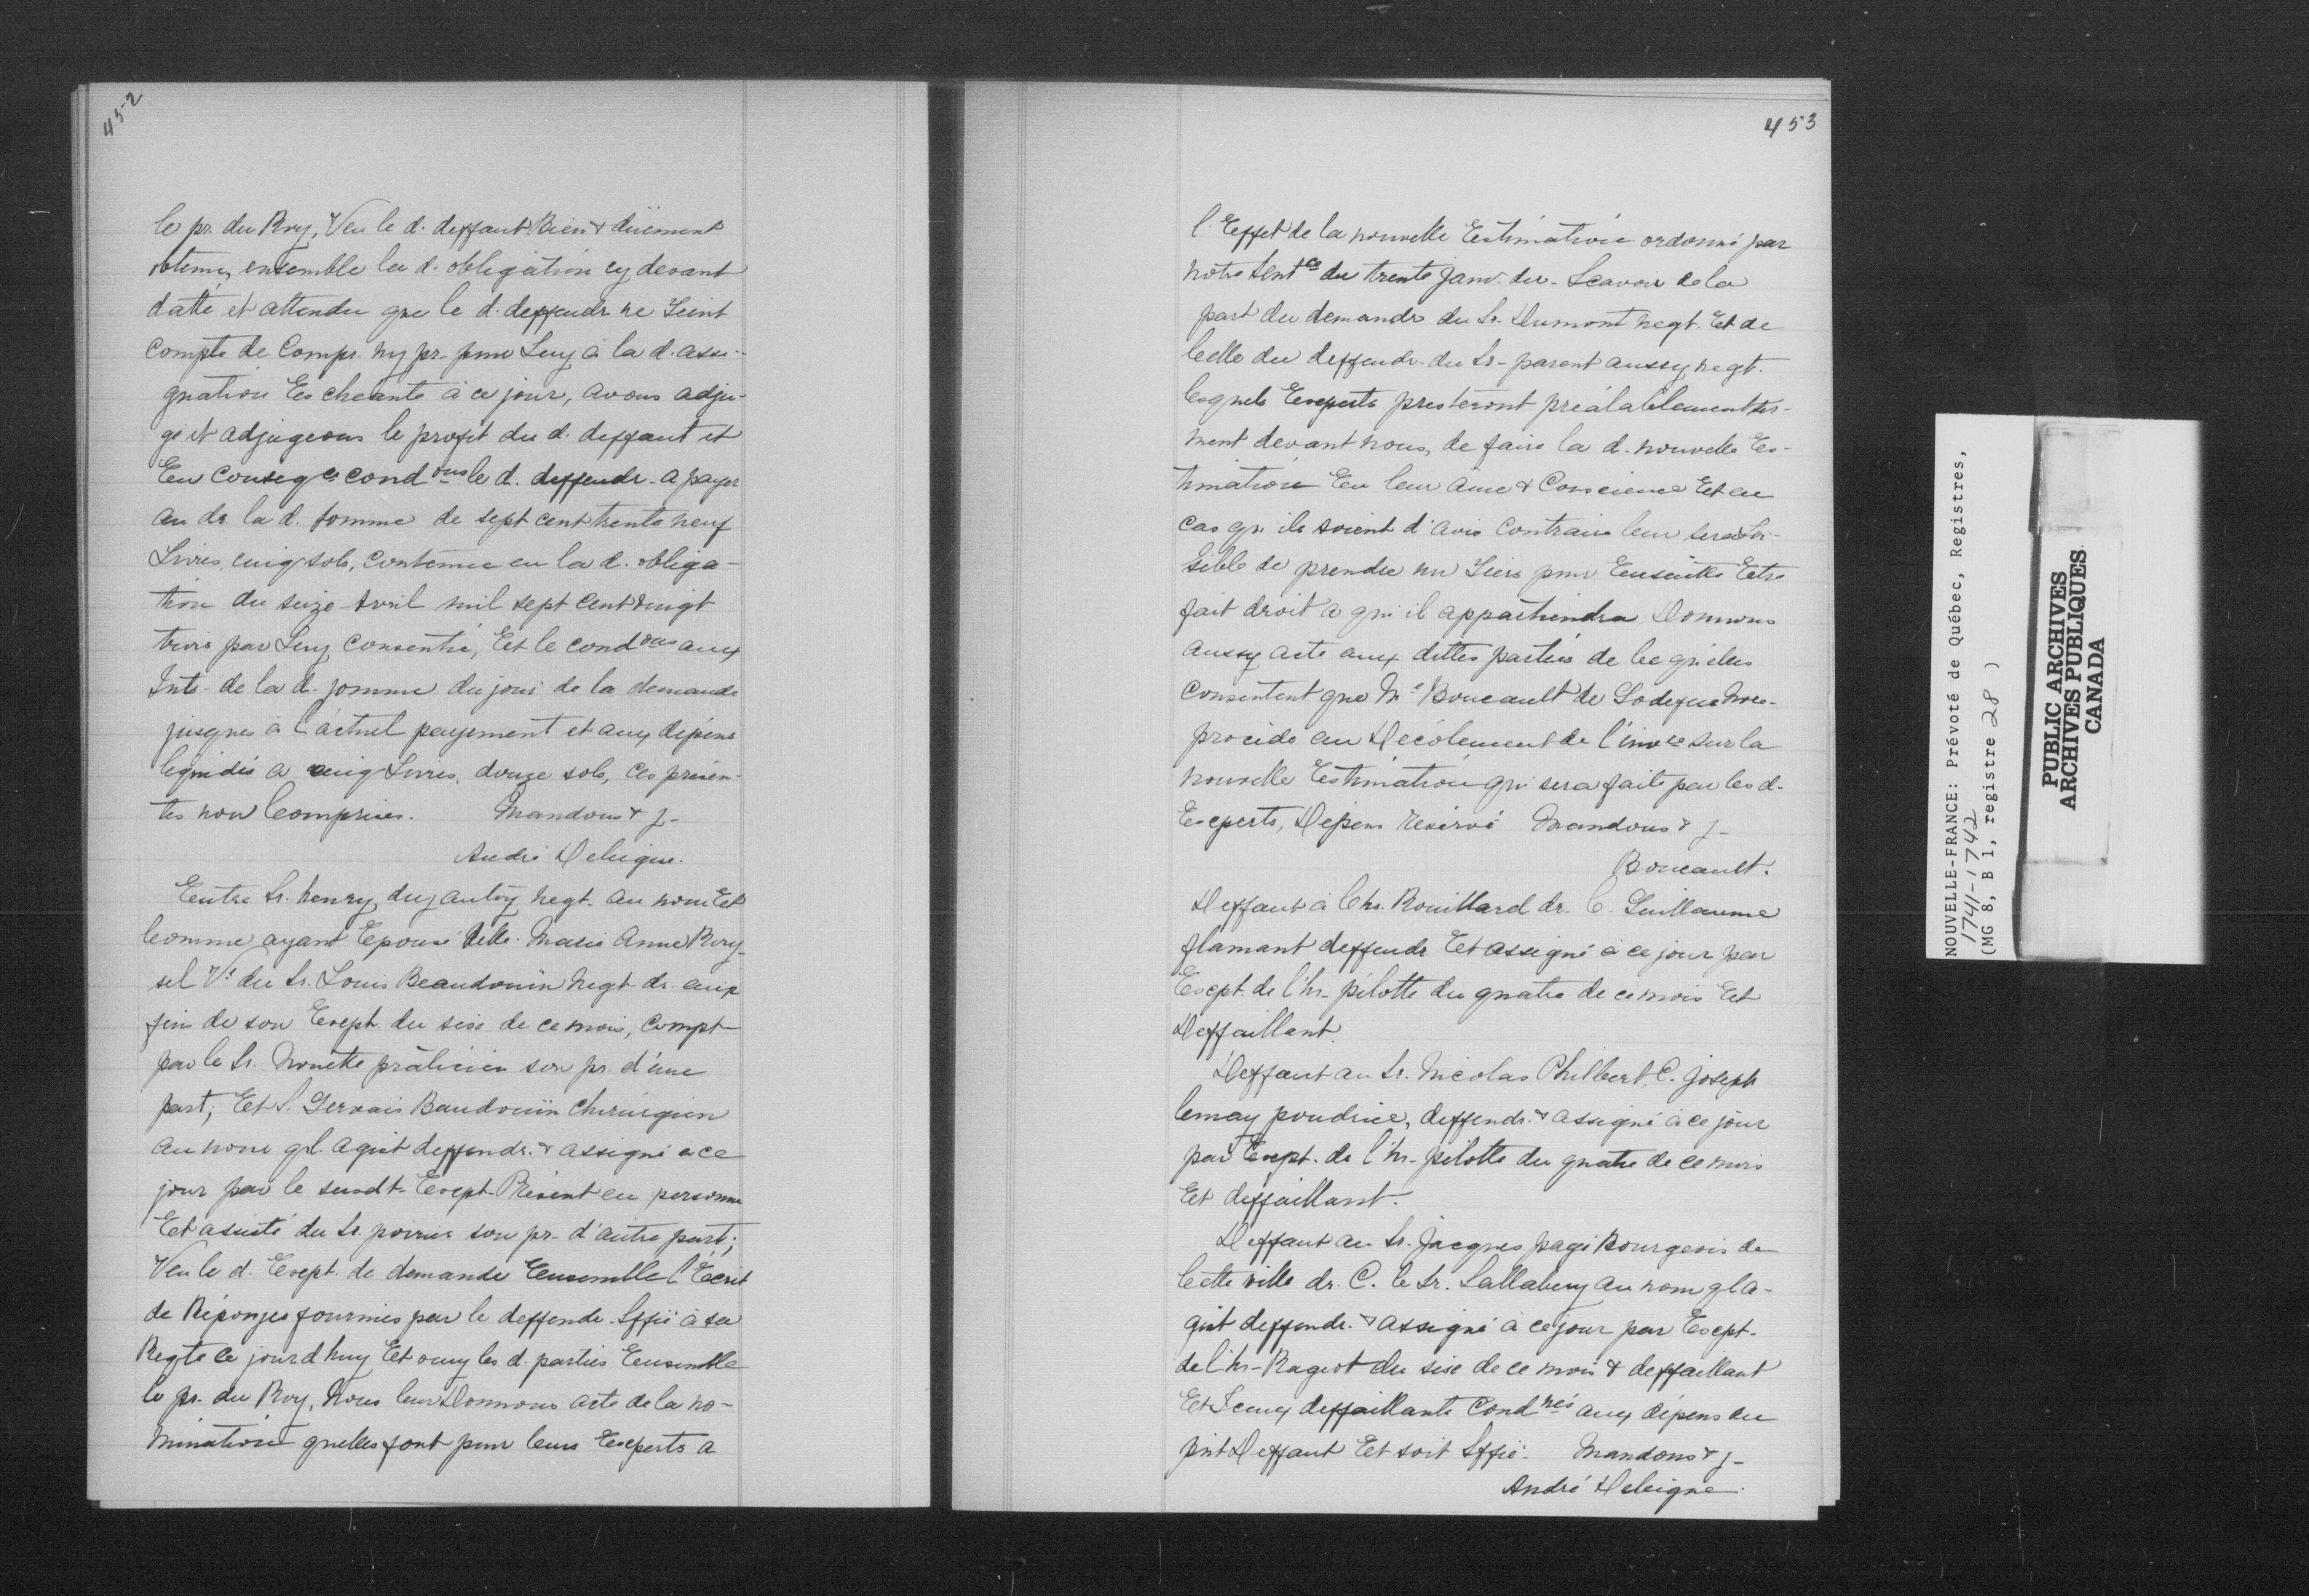 452
le pr. du Roy, Veu le d. deffaut Bien & düement
obtenu, ensemble la d. obligation cy devant
datté et attendu que le d. deffendr ne Tient
Compte de Compr. ny pr. pour Luy à la d. assi-
gnation Escheante à ce jour, avons adju-
gé et adjugeons le profit du d. deffaut et
En conseqce condons le d. deffendr. a payer
au dr. la d. somme de sept cent trente neuf
Livres, cinq sols, contenue en la d. obliga-
tion du seize Avril mil sept cent vingt
trois par Luy consentie, Et le condons aux
Ints. de la d. somme du jour de la demande
jusques à l'actuel payement et aux dépens
liquidés a cinq Livres, douze sols, ces présen-
tes non Comprises. Mandons & J-
André Deleigne.
Entre Sr. henry dujautoy negt. au nom Et
Comme ayant Epousé Delle. Marie Anne Roy-
sel Ve. du Sr. Louis Beaudouin negt. dr. aux
fins de son Exept. du sise de ce mois, compt-
par le Sr. Nouette praticien son pr. d'une
part; Et S. Gervais Baudouin chirurgien
au nom ql. agit deffendr. & assigné à ce
jour par le susdt. Exept. Présent en personne
Et assisté du Sr. poirier son pr. d'autre part;
Veu le d. Exept. de demande Ensemble l'Ecrit
de Réponses fournies par le deffendr. Sffié à sa
Reqte ce jourd'huy Et ouy les d. parties Ensemble
le pr. du Roy, Nous leur Donnons acte de la no-
mination quelles font pour leurs Experts a
453
l'Effet de la nouvelle Estimation ordonné par
notre Sentce du trente janv. der. Scavoir de la
part du demandr du Sr. Dumont negt. Et de
Celle du deffendr. du Sr. parent aussy negt.
lesquels Experts presteront préalablement ser-
ment devant nous, de faire la d. nouvelle Es-
timation En leur âme & Conscience Et en
cas qu'ils soient d'avis Contraire leur sera Loi-
sible de prendre un Tiers pour Ensuitte Etre
fait droit a qui il appartiendra Donnons
aussy acte aux dittes parties de ce qu'elles
Consentent que Me Boucault de Godefus Nore.
procède au Décolement de l'invre sur la
nouvelle Estimation qui sera faite par les d.
Experts, Dépens réservé Mandons & J-
Boucault.
Deffaut à Chs. Rouillard dr. C. Guillaume
flamant deffendr Et assigné à ce jour par
Exept. de l'hr. pilotte du quatre de ce mois Et
Deffaillant.
Deffaut au Sr. Nicolas Philbert, C. joseph
lemay poudrier, deffendr. & assigné à ce jour
par Exept. de l'hr. pilotte du quatre de ce mois
Et deffaillant.
Deffaut au Sr. Jacques pagé Bourgeois de
Cette ville dr. C. le Sr. Sallabery au nom ql a-
git deffendr. & assigné à ce jour par Exept.
de l'hr. Rageot du sise de ce mois & deffaillant
Et Iceux deffaillants Condnés aux dépens du
pnt Deffaut Et soit Sffié. Mandons & J-
André Deleigne.
NOUVELLE-FRANCE: Prévoté de Québec, Registres,
1741-1742
(MG 8, B 1, registre 28 )
PUBLIC ARCHIVES
ARCHIVES PUBLIQUES
CANADA